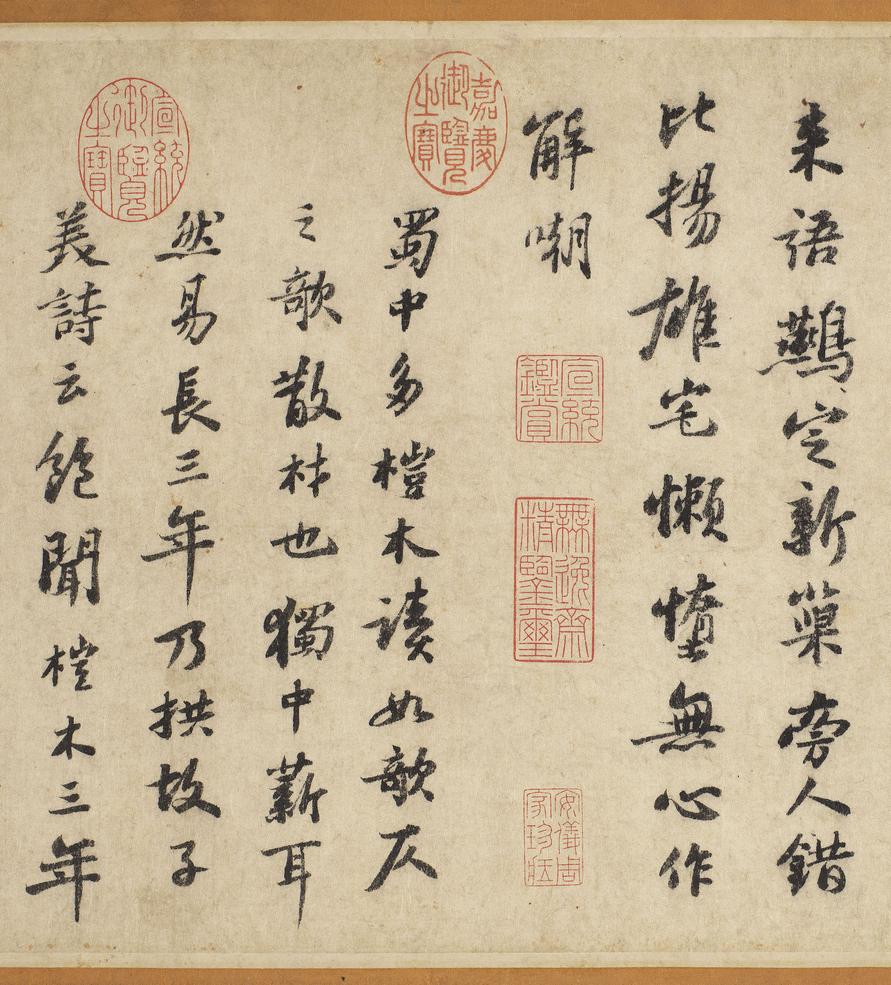 来語鷰定新巢旁人錯
比揚雄宅懶憜無心作
解嘲
嘉慶御覽之寶
宣統鑑賞
無逸齋精鑒璽
安儀周家珍藏
蜀中多榿木讀如欹仄
之欹散材也獨中薪耳
然易長三年乃拱故子
宣統御覽之寶
美詩云飽聞榿木三年